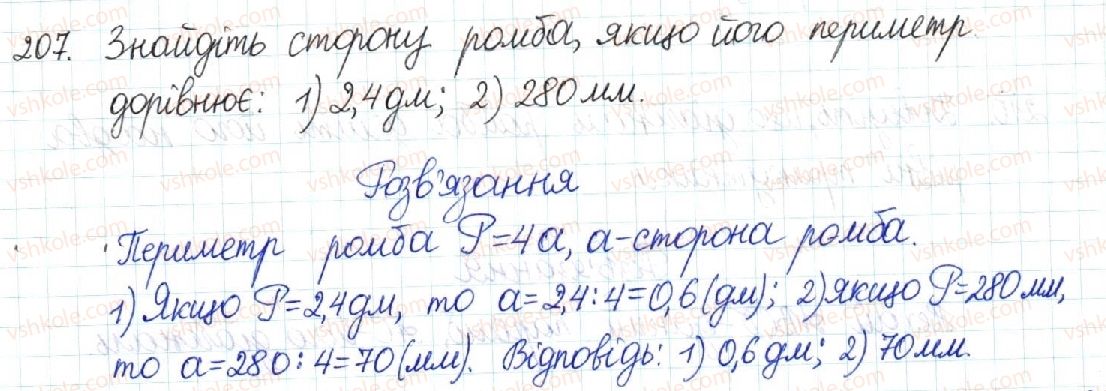 207. Знайдіть сторону ромба, якщо його периметр
дорівнює: 1) 2,4 дм; 2) 280 мм.
Розв'язання
Периметр ромба P=4a, a-сторона ромба.
1) Якщо P=2,4дм, то a=2,4:4=0,6(дм); 2) якщо P=280мм,
то a=280:4=70(мм). Відповідь: 1) 0,6дм; 2) 70мм.